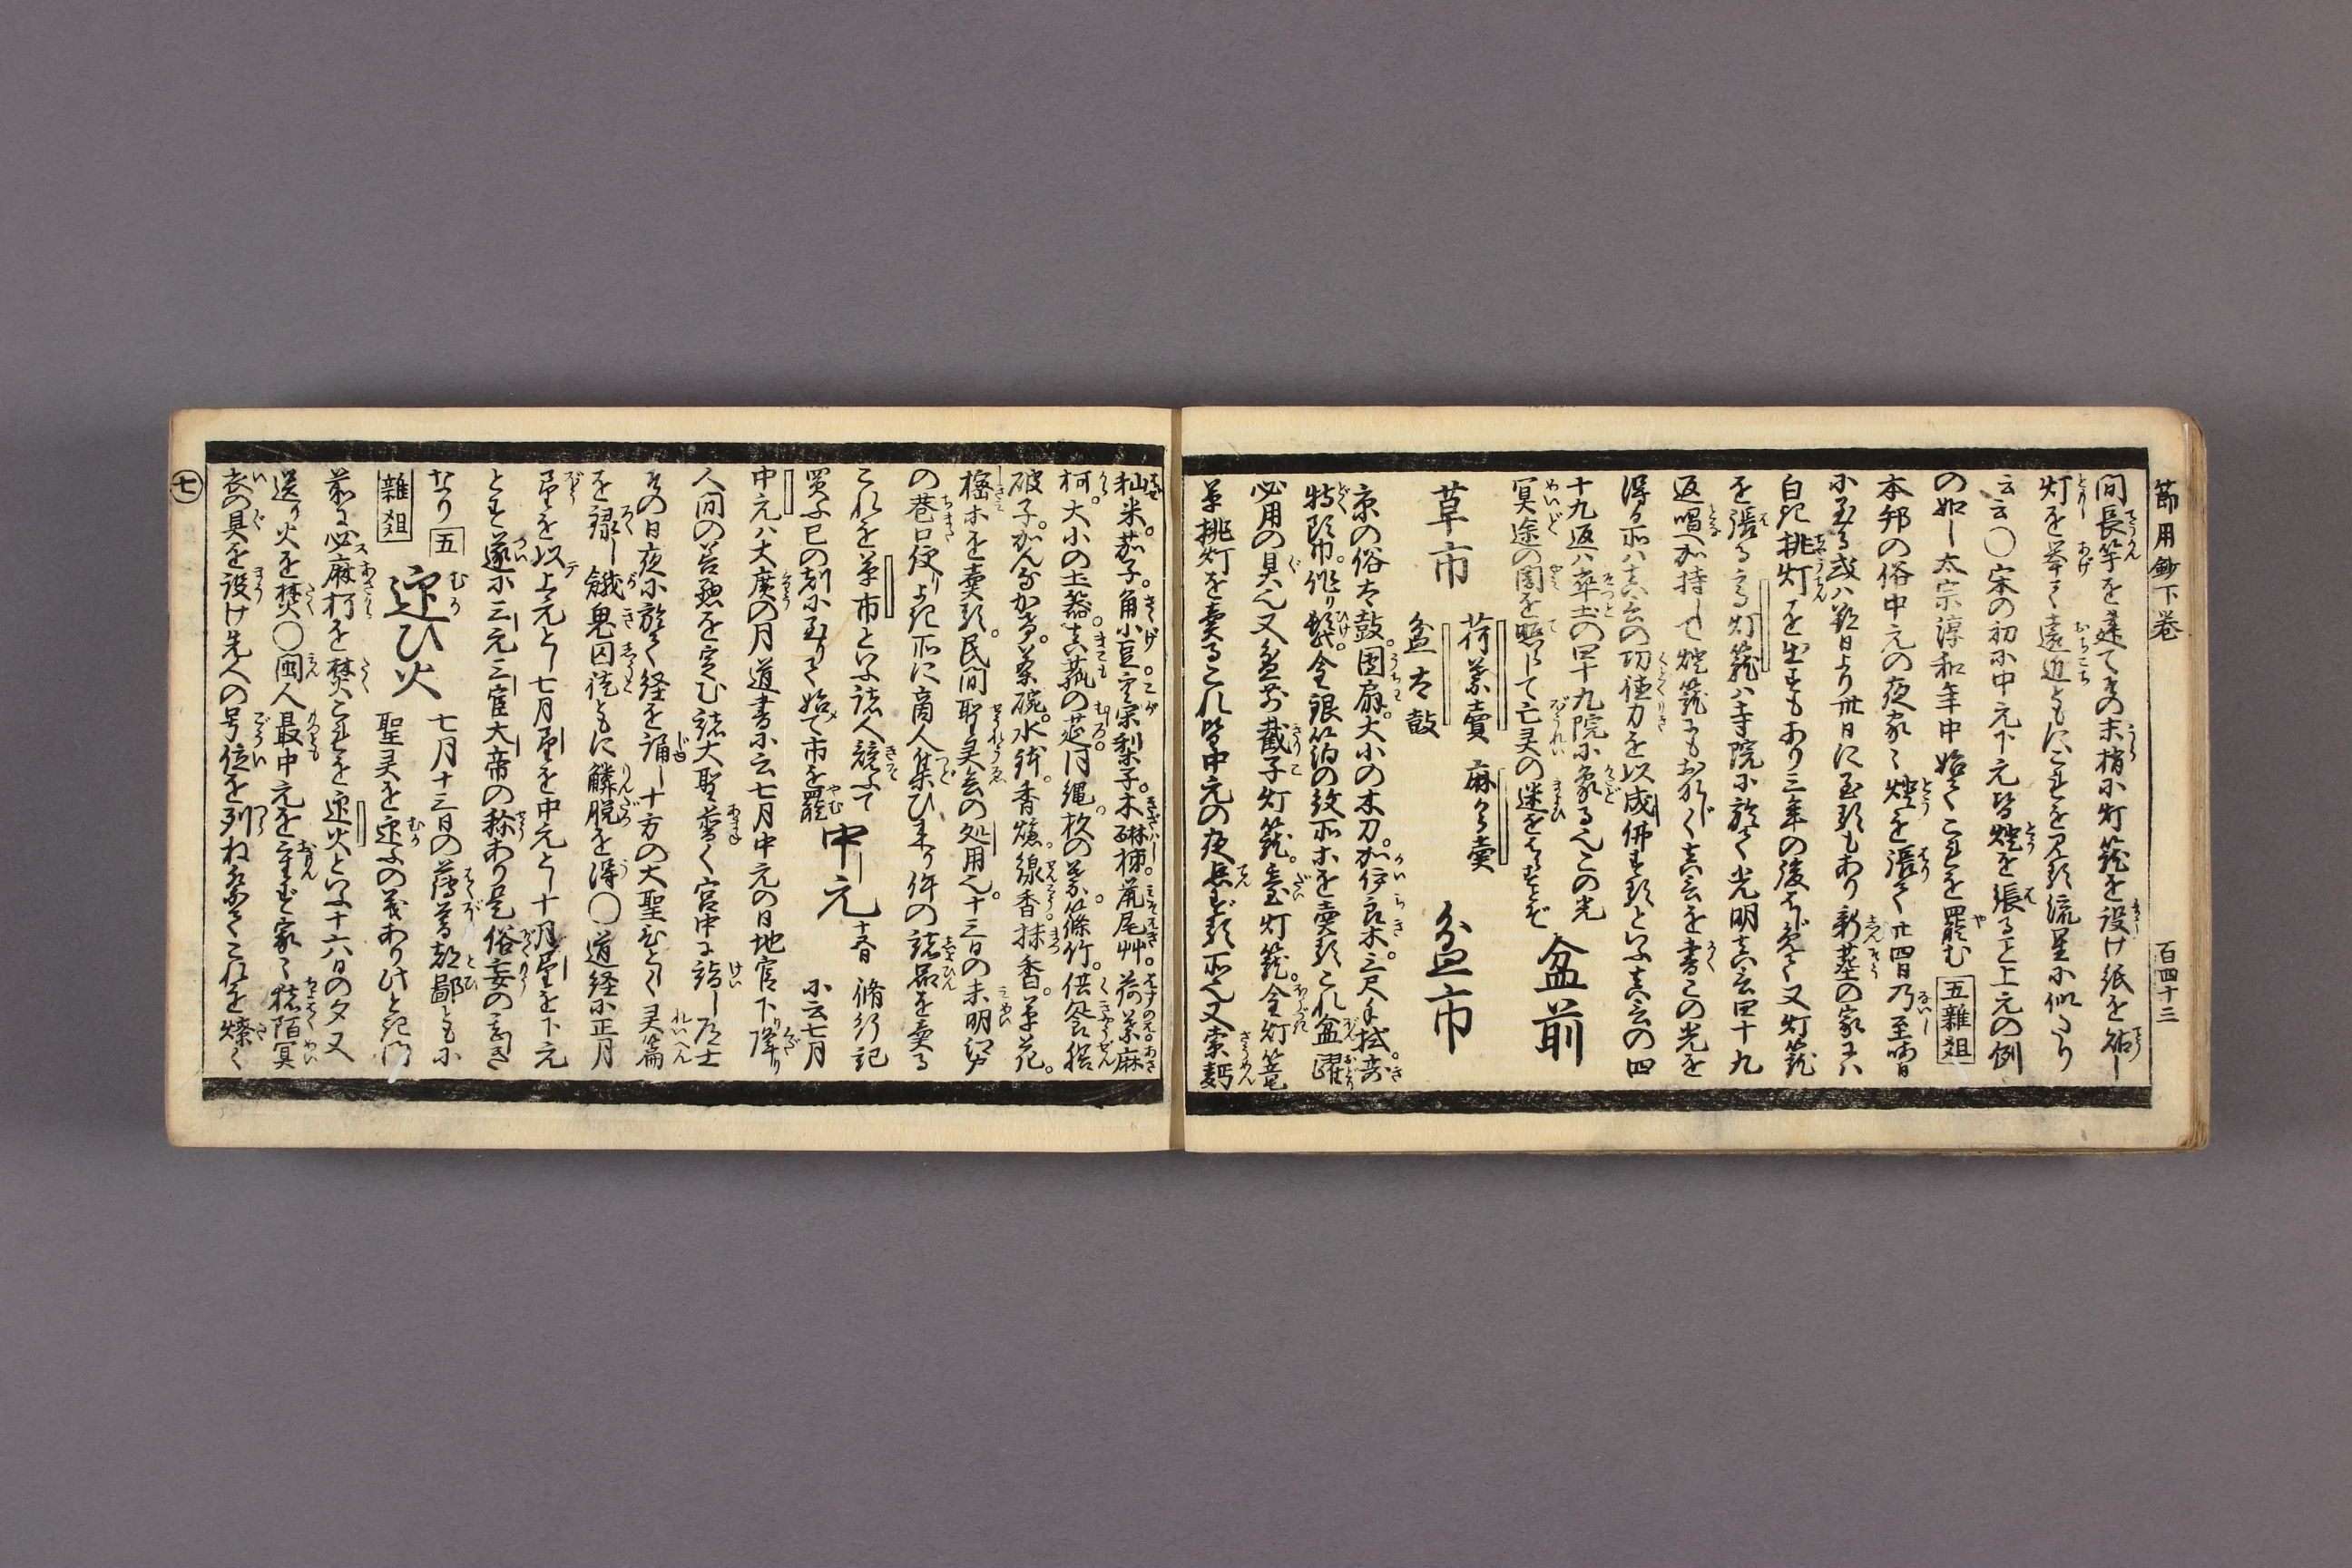 節用鈔下巻
百四十三
間長竿を建てその末梢に灯籠を設け紙を粘し
灯を挙て遠近ともにこれを見る流星に似たり
云云〇宋の初に中元下元皆燈を張ること上元の例
の如し太宗淳和年中始てこれを罷む五雑爼
本邦の俗中元の夜家々燈を張て廿四日乃至晦日
に至る或ハ朔日より卅日に至るもあり新葬の家にハ
白き挑灯を出すもあり三年の後あらざるハ又灯籠
を張るこの灯籠ハ寺院に於て光明真言四十九
返唱へ加持して燈籠にもおなじく真言を書この光を
得る所ハ真言の功徳力を以成仏するといふ真言の四
十九返ハ卒土の四十九院に象る也この光
冥途の闇を照して亡灵の迷を
盆前
草市
荷葉賣
麻から賣
盆太鼓
盆市
京の俗太鼓。団扇。大小の木刀。加伊良木。三尺手拭。奇
特頭巾。作り髭。金銀箔の紋所ホを賣るこれ盆躍
必用の具也又盆前截子灯籠。臺灯篭。金灯篭
草挑灯を賣るこれ皆中元の夜点ずる所也又索麪
秈米。茄子。角小豆。空宗梨子。木醂柹。鼠尾艸。荷葉麻
柯。大小の土器。真菰の莚同縄。杦の葉。篠竹。供養膳
破子。茶碗。水鉢。香爐。線香抹香。草花。
樒ホを賣る。民間聖灵会の処用也。十三日の未明処々
の巷口便りよき所に商人集ひ来り件の諸品を賣る
これを草市といふ諸人競ふて
買ふ巳の刻に至りて始て市を罷
中元
十五日
脩行記
に云七月
中元ハ大慶の月道書に云七月中元の日地官下降り
人間の善悪を定む諸大聖普く宮中に詣し道士
その日夜に於て経を誦し十方の大聖ひとしく灵篇
を録し餓鬼囚徒ともに觧脱を得〇道経に正月
望を以上元とし七月望を中元とし十月望を下元
とす遂に三元三官大帝の称あり是俗妄の甚き
なり五
雑爼
迎ひ火
七月十三日の薄暮都鄙ともに
聖灵を迎ふの義あり此とき門
前に必麻朽を焚これを迎火といふ十六日の夕又
送り火を焚〇閩人最中元を重ず家々猪陌冥
衣の具を設け先人の号位を列ね祭てこれを燎く
七